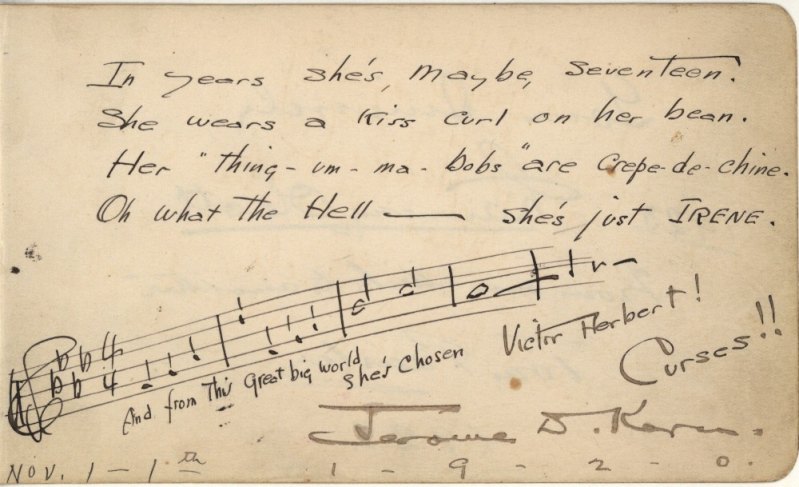 In years she's, maybe, seventeen.
She wears a kiss curl on her bean.
Her "thing-um-ma-bobs" are crepe-de-chine.
Oh what the Hell — she's just IRENE.
4 4
And from this great big world she's chosen
Victor Herbert!
Curses!!
Jerome D. Kern.
Nov. 1 - 1th 1 - 9 - 2 - 0.